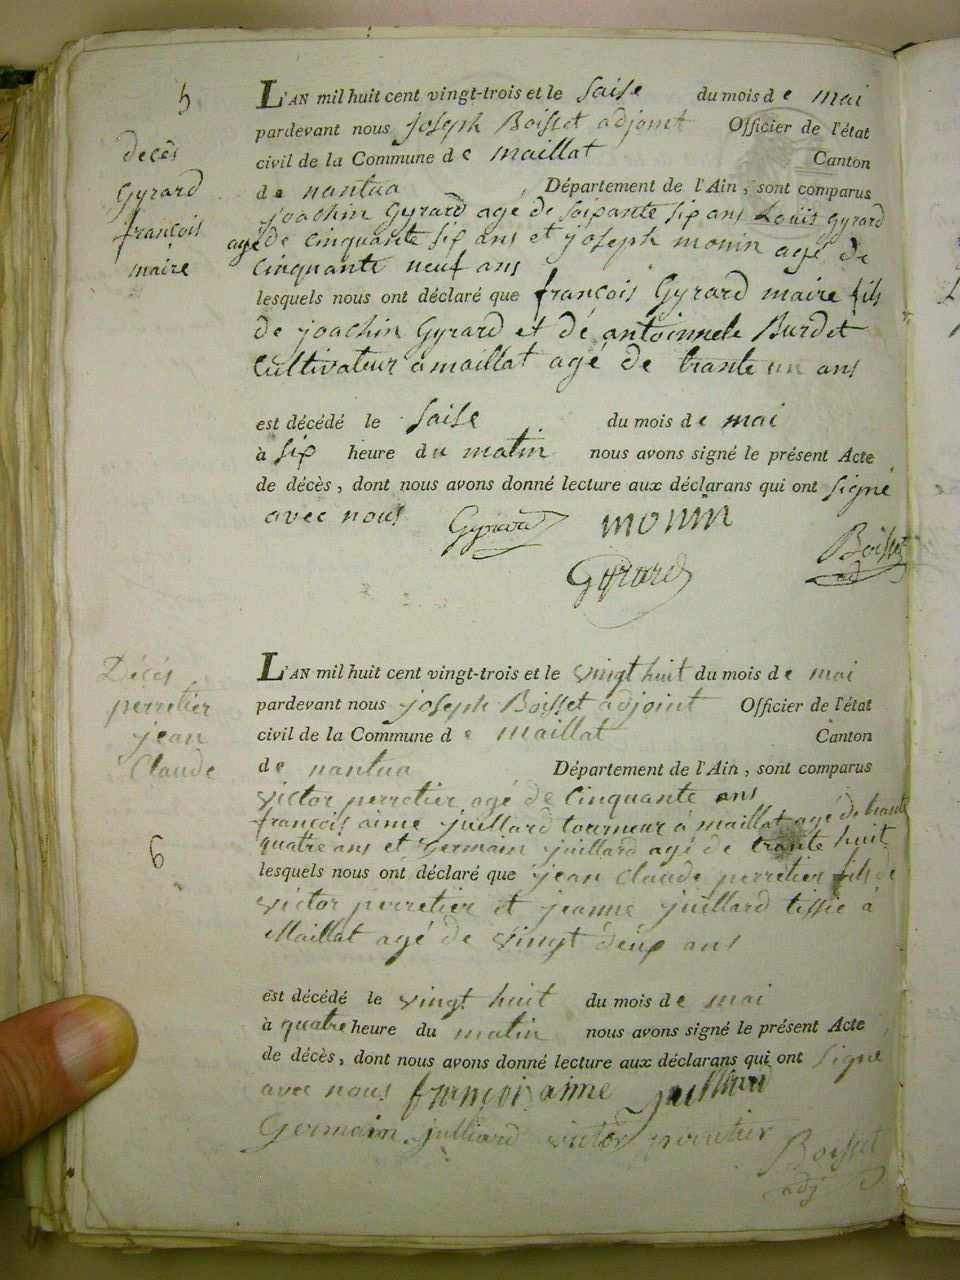 5
decès
Gyrard
françois
maire
L'AN mil huit cent vingt-trois et le saise du mois de mai
pardevant nous joseph Boisset adjoint Officier de l'état
civil de la Commune de maillat Canton
de nantua, Département de l'Ain, sont comparus
joachin Gyrard agé de soixante six ans Louis gyrard
agé de cinquante six ans et joseph monin agé de
cinquante neuf ans
lesquels nous ont déclaré que françois Gyrard maire fils
de joachin Gyrard et dé antoinnete Burdet
cultivateur a maillat agé de trante un ans
est décédé le saise du mois de mai
à six heure du matin nous avons signé le présent Acte
de décès, dont nous avons donné lecture aux déclarans qui ont signé
avec nous Gyrard monin Boisset
adj
Gyrard
Décés
perretier
jean
Claude
6
L'AN mil huit cent vingt-trois et le vingt huit du mois de mai
pardevant nous joseph Boisset adjoint Officier de l'état
civil de la Commune de maillat Canton
de nantua Département de l'Ain, sont comparus
victor perretier agé de cinquante ans
françois aime juillard tourneur á maillat agé de trante
quatre ans et germain juillard agé de trante huit
lesquels nous ont déclaré que jean claude perretier fils de
victor perretier et jeanne juillard tissié á
Maillat agé de vingt déux ans
est décédé le vingt huit du mois de mai
à quatre heure du matin nous avons signé le présent Acte
de décès, dont nous avons donné lecture aux déclarans qui ont signé
avec nous françois aime juilliard
Germain julliard victor perretier Boisset
adj